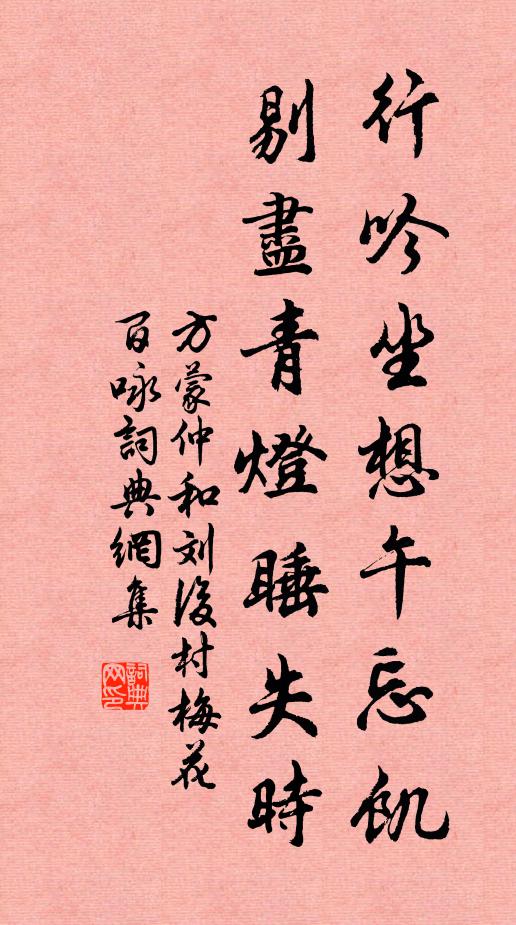 行吟坐想午忘飢
剔盡青燈睡失時
方蒙仲和刘後村梅花
百咏詞典網集
詞典网印